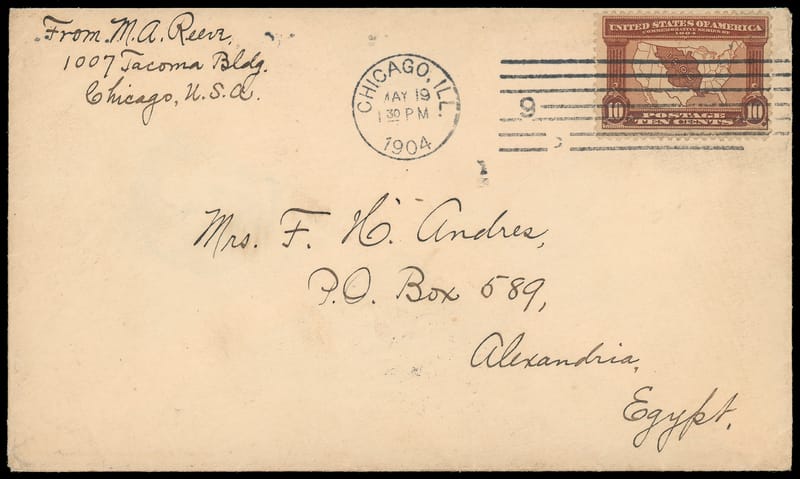 From M.A. Reeve,
1007 Tacoma Bldg.
Chicago, U.S.A.
CHICAGO, ILL.
MAY 19
1 30 PM
1904
9
UNITED STATES OF AMERICA
COMMEMORATIVE SERIES OF
1904
10 10
POSTAGE
TEN CENTS
Mrs. F. H. Andres,
P.O. Box 589,
Alexandria,
Egypt.